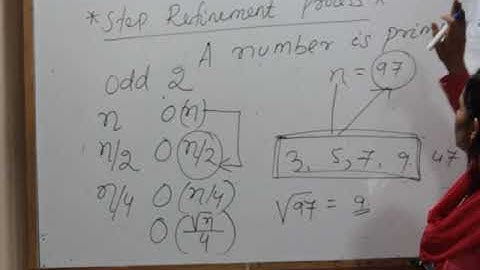 * Step Refinement process *
A number is prim
odd 2
n = 97
n O(n)
n/2 O(n/2)
3, 5, 7, 9 47
n/4 O(n/4)
√97 = 9
O(√n/4)